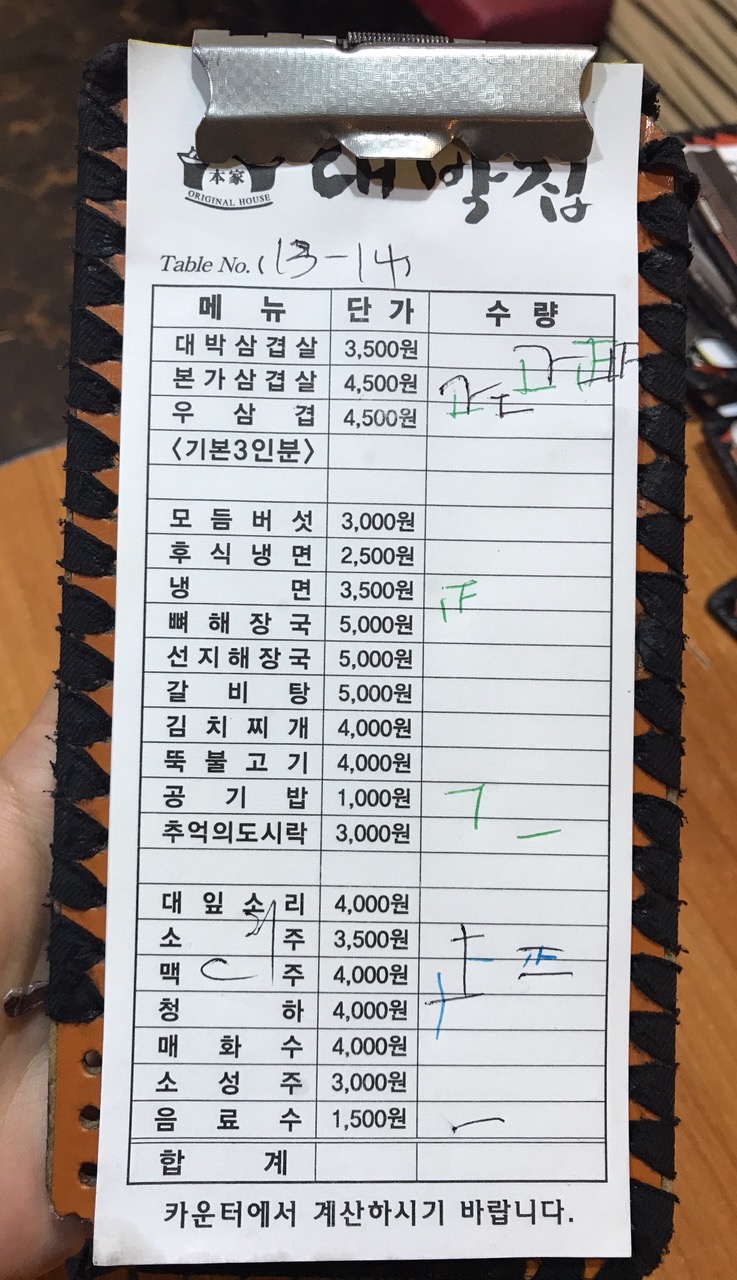 本家
ORIGINAL HOUSE
대박집
Table No. (13-14)
메 뉴 단 가 수 량
대박삼겹살 3,500원
본가삼겹살 4,500원
우 삼 겹 4,500원
<기본3인분>
모 듬 버 섯 3,000원
후 식 냉 면 2,500원
냉 면 3,500원 正
뼈 해 장 국 5,000원
선지해장국 5,000원
갈 비 탕 5,000원
김 치 찌 개 4,000원
뚝 불 고 기 4,000원
공 기 밥 1,000원
추억의도시락 3,000원
대 잎 소 리 4,000원
소 주 3,500원
맥 주 4,000원
청 하 4,000원
매 화 수 4,000원
소 성 주 3,000원
음 료 수 1,500원 一
합 계
카운터에서 계산하시기 바랍니다.